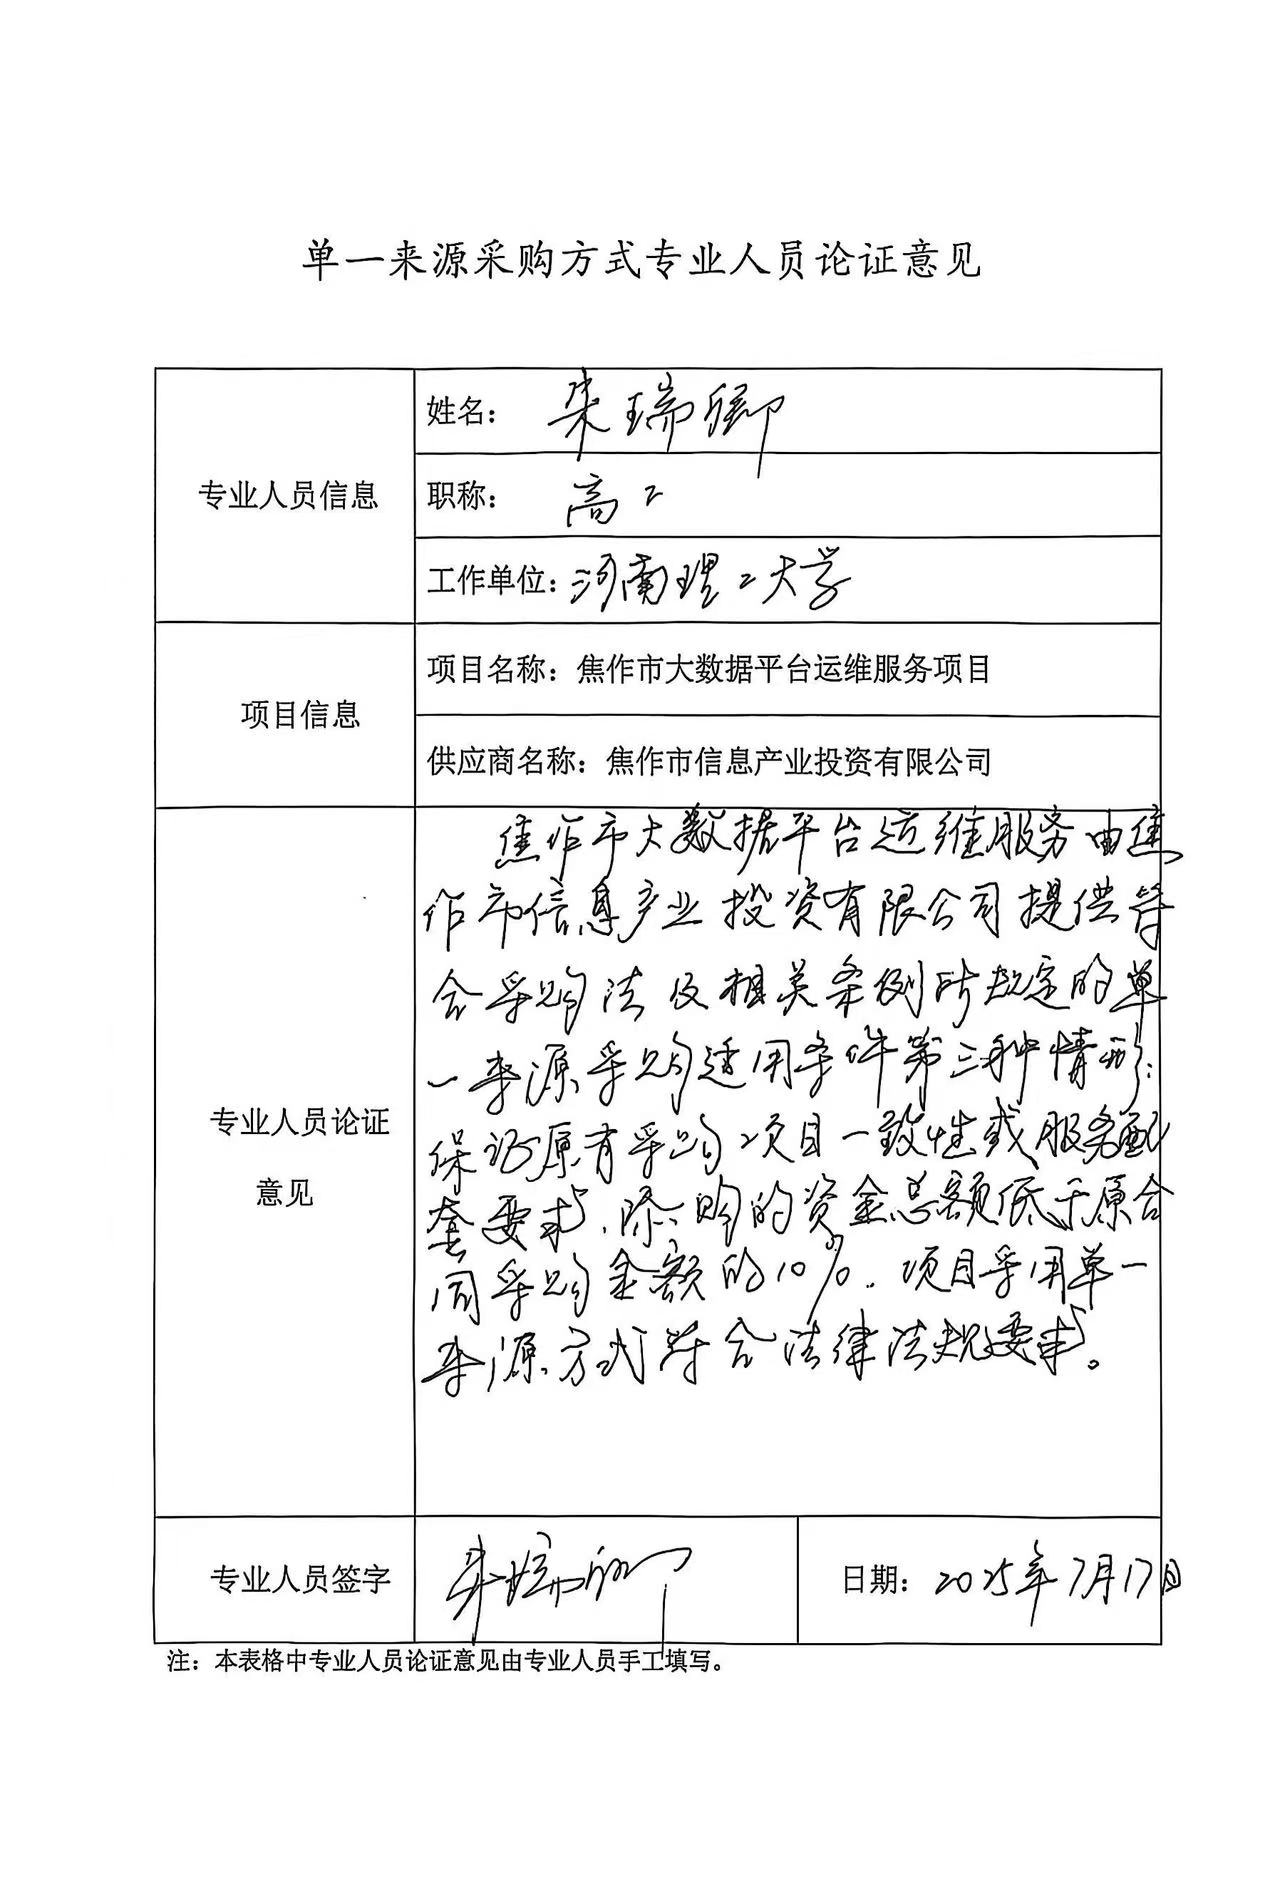 单一来源采购方式专业人员论证意见
专业人员信息
姓名：朱瑞卿
职称：高工
工作单位：河南理工大学
项目信息
项目名称：焦作市大数据平台运维服务项目
供应商名称：焦作市信息产业投资有限公司
专业人员论证
意见
焦作市大数据平台运维服务由焦
作市信息产业投资有限公司提供符
合采购法及相关条例所规定的单
一来源采购适用条件第三种情形：
保证原有采购项目一致性或服务配
套要求，添购的资金总额低于原合
同采购金额的10%。项目采用单一
来源方式符合法律法规要求。
专业人员签字
朱瑞卿
日期：2025年7月17日
注：本表格中专业人员论证意见由专业人员手工填写。